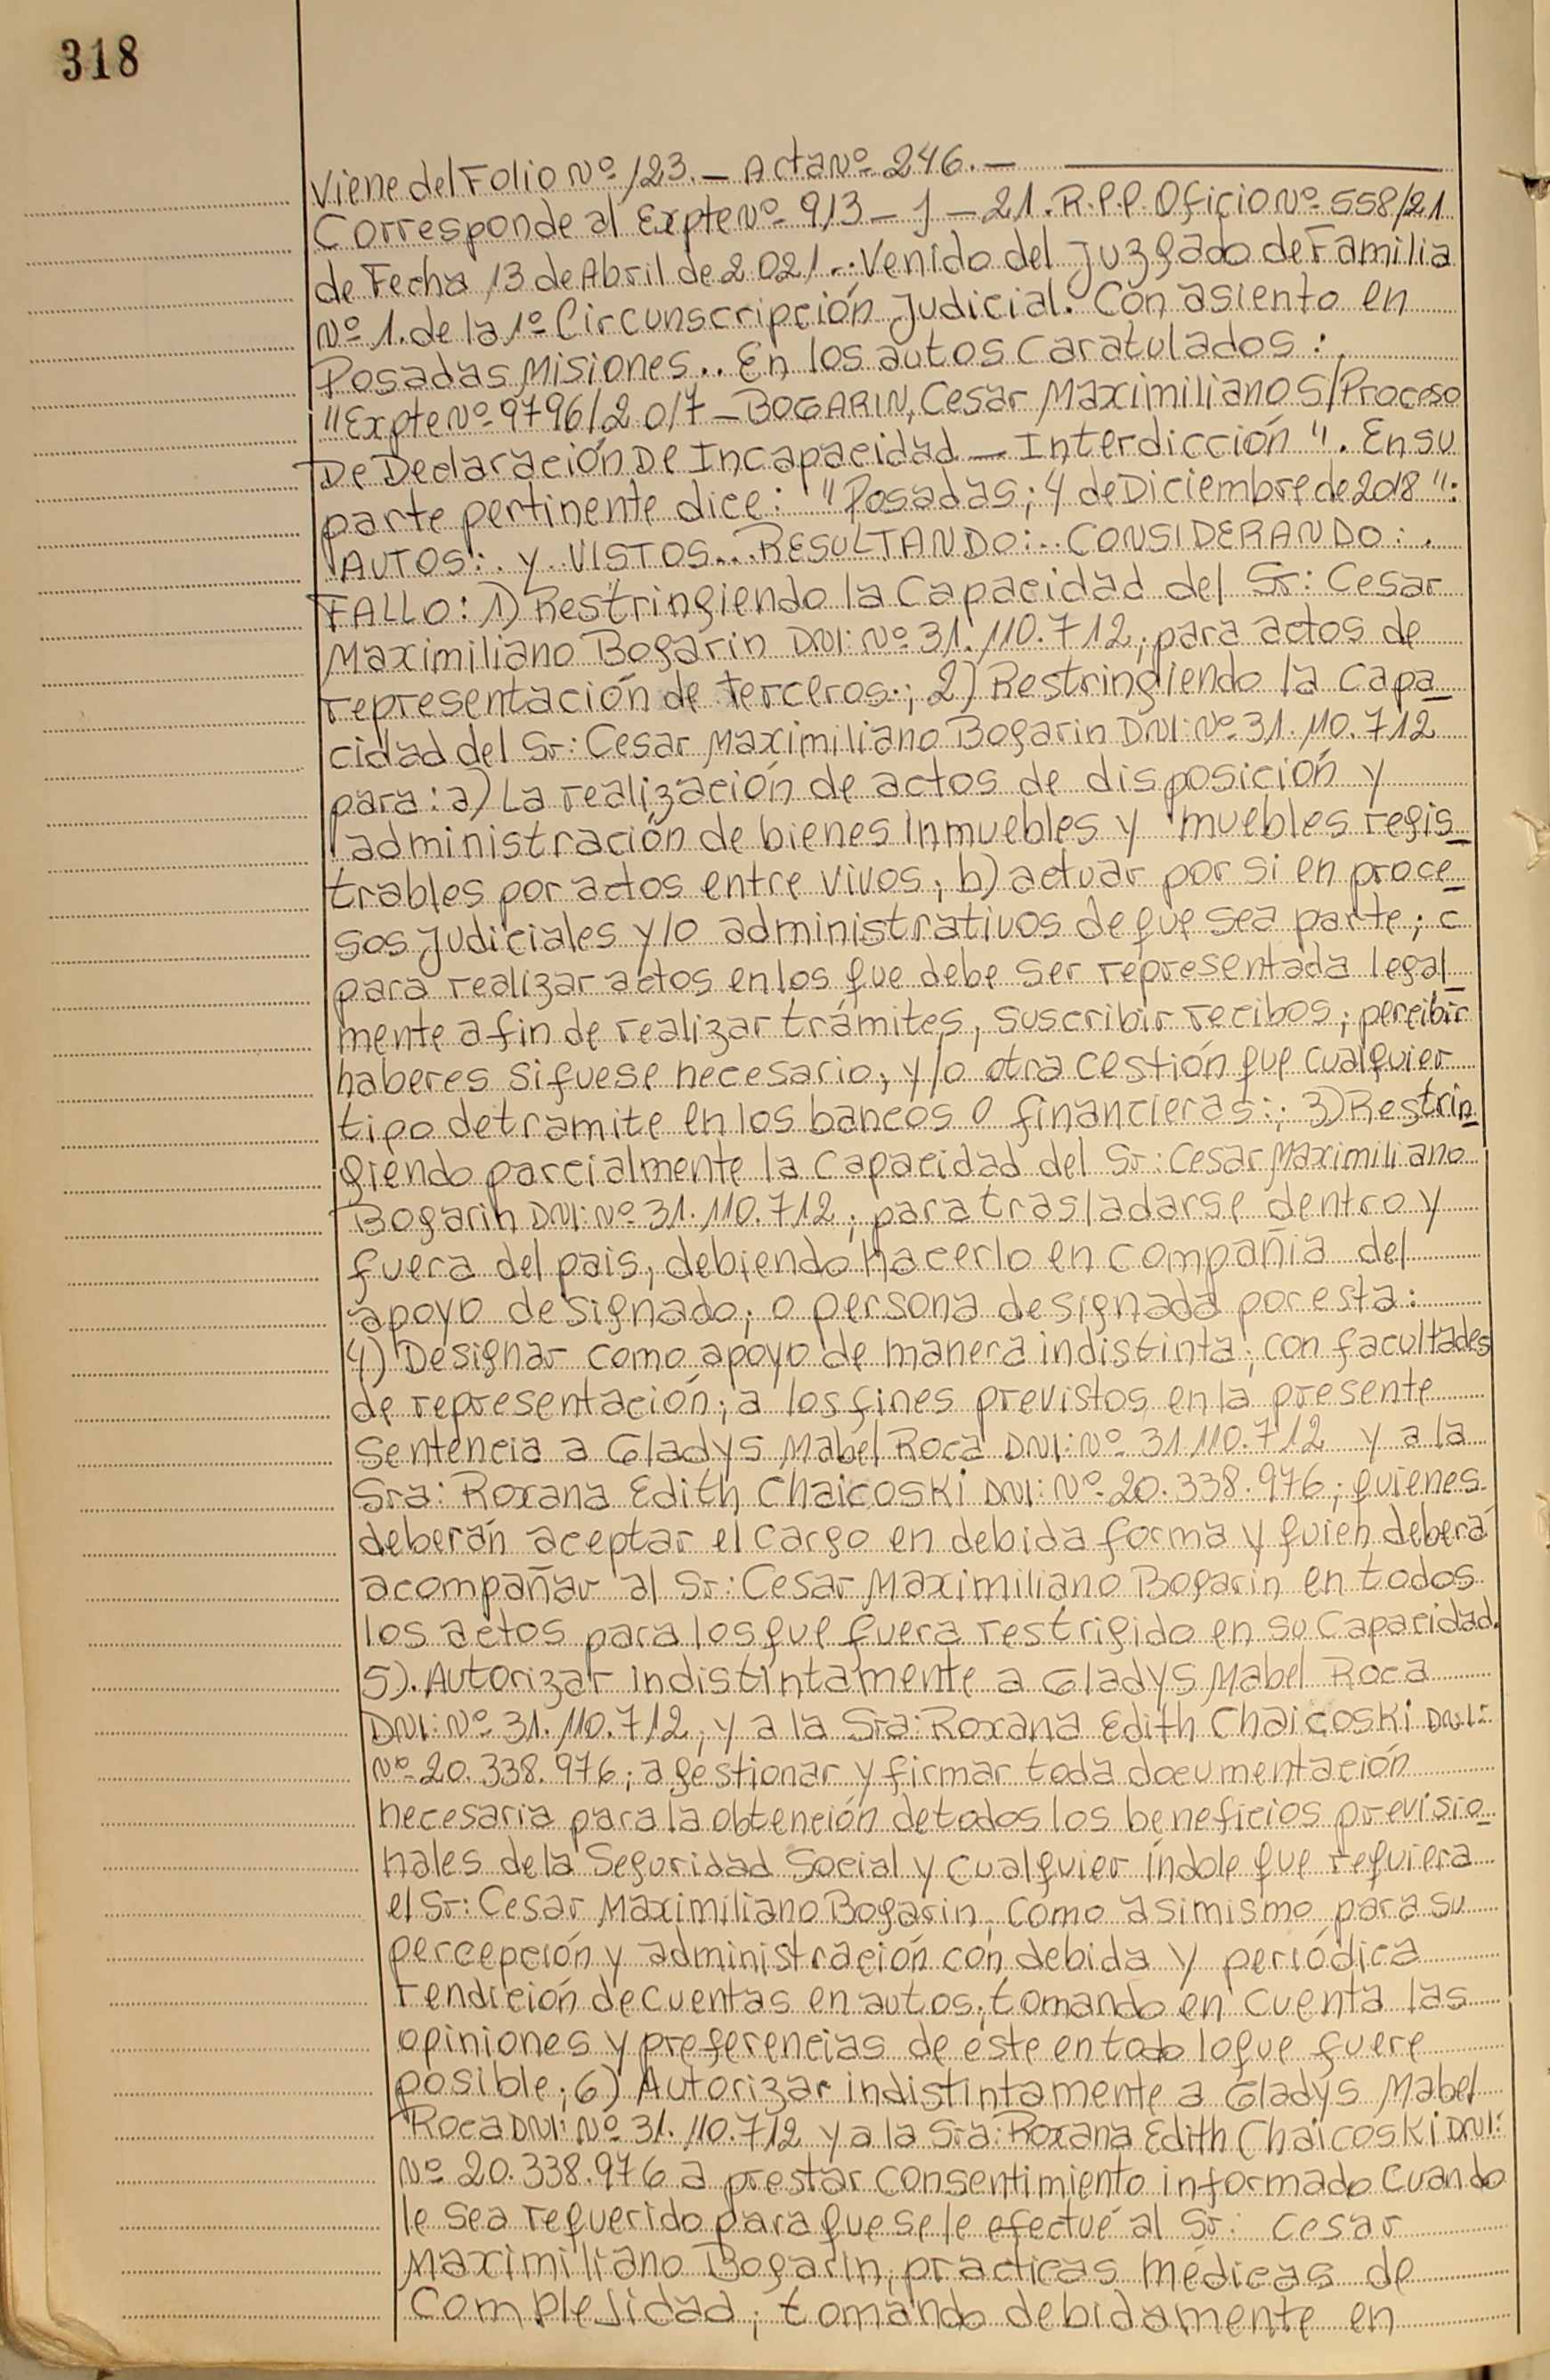 318
Viene del Folio Nº 123.— Acta Nº 246.—
Corresponde al Expte Nº 913 — J — 21. R.P.P. Oficio Nº 558/21
de Fecha 13 de Abril de 2021.. Venido del Juzgado de Familia
Nº 1. de la 1º Circunscripción Judicial. Con asiento en
Posadas Misiones.. En los autos Caratulados:
"Expte Nº 9796/2017 — BOGARIN, Cesar Maximiliano S/Proceso
De Declaración De Incapacidad — Interdicción". En su
parte pertinente dice: "Posadas; 4 de Diciembre de 2018":
AUTOS: Y VISTOS... RESULTANDO:.. CONSIDERANDO:.
FALLO: 1) Restringiendo la Capacidad del Sr: Cesar
Maximiliano Bogarin DNI: Nº 31.110.712; para actos de
representación de terceros.; 2) Restringiendo la Capa_
cidad del Sr: Cesar Maximiliano Bogarin DNI: Nº 31.110.712
para: a) La realización de actos de disposición y
administración de bienes inmuebles y muebles regis_
trables por actos entre vivos; b) actuar por si en proce_
sos Judiciales y/o administrativos de que sea parte; c
para realizar actos en los que debe ser representada legal_
mente a fin de realizar trámites, suscribir recibos; percibir
haberes si fuese necesario; y/o otra cestión que cualquier
tipo de tramite en los bancos o financieras:; 3) Restrin_
giendo parcialmente la Capacidad del Sr: Cesar Maximiliano
Bogarin DNI: Nº 31.110.712; para trasladarse dentro y
fuera del pais, debiendo hacerlo en compañia del
apoyo designado; o persona designada por esta:
4) Designar como apoyo de manera indistinta; con facultades
de representación; a los fines previstos en la presente
Sentencia a Gladys Mabel Roca DNI: Nº 31.110.712 y a la
Sra: Roxana Edith Chaicoski DNI: Nº 20.338.976; quienes
deberán aceptar el cargo en debida forma y quien deberá
acompañar al Sr: Cesar Maximiliano Bogarin en todos
los actos para los que fuera restrigido en su Capacidad.
5). Autorizar indistintamente a Gladys Mabel Roca
DNI: Nº 31.110.712, y a la Sra: Roxana Edith Chaicoski DNI:
Nº 20.338.976; a gestionar y firmar toda documentación
necesaria para la obtención de todos los beneficios previsio_
nales de la Seguridad Social y cualquier índole que requiera
el Sr: Cesar Maximiliano Bogarin, como asimismo para su
percepción y administración con debida y periódica
rendición de cuentas en autos; tomando en cuenta las
opiniones y preferencias de este en todo lo que fuere
posible; 6) Autorizar indistintamente a Gladys Mabel
Roca DNI: Nº 31.110.712 y a la Sra: Roxana Edith Chaicoski DNI:
Nº 20.338.976 a prestar consentimiento informado cuando
le sea requerido para que se le efectué al Sr: Cesar
Maximiliano Bogarin, practicas médicas de
Complejidad; tomando debidamente en